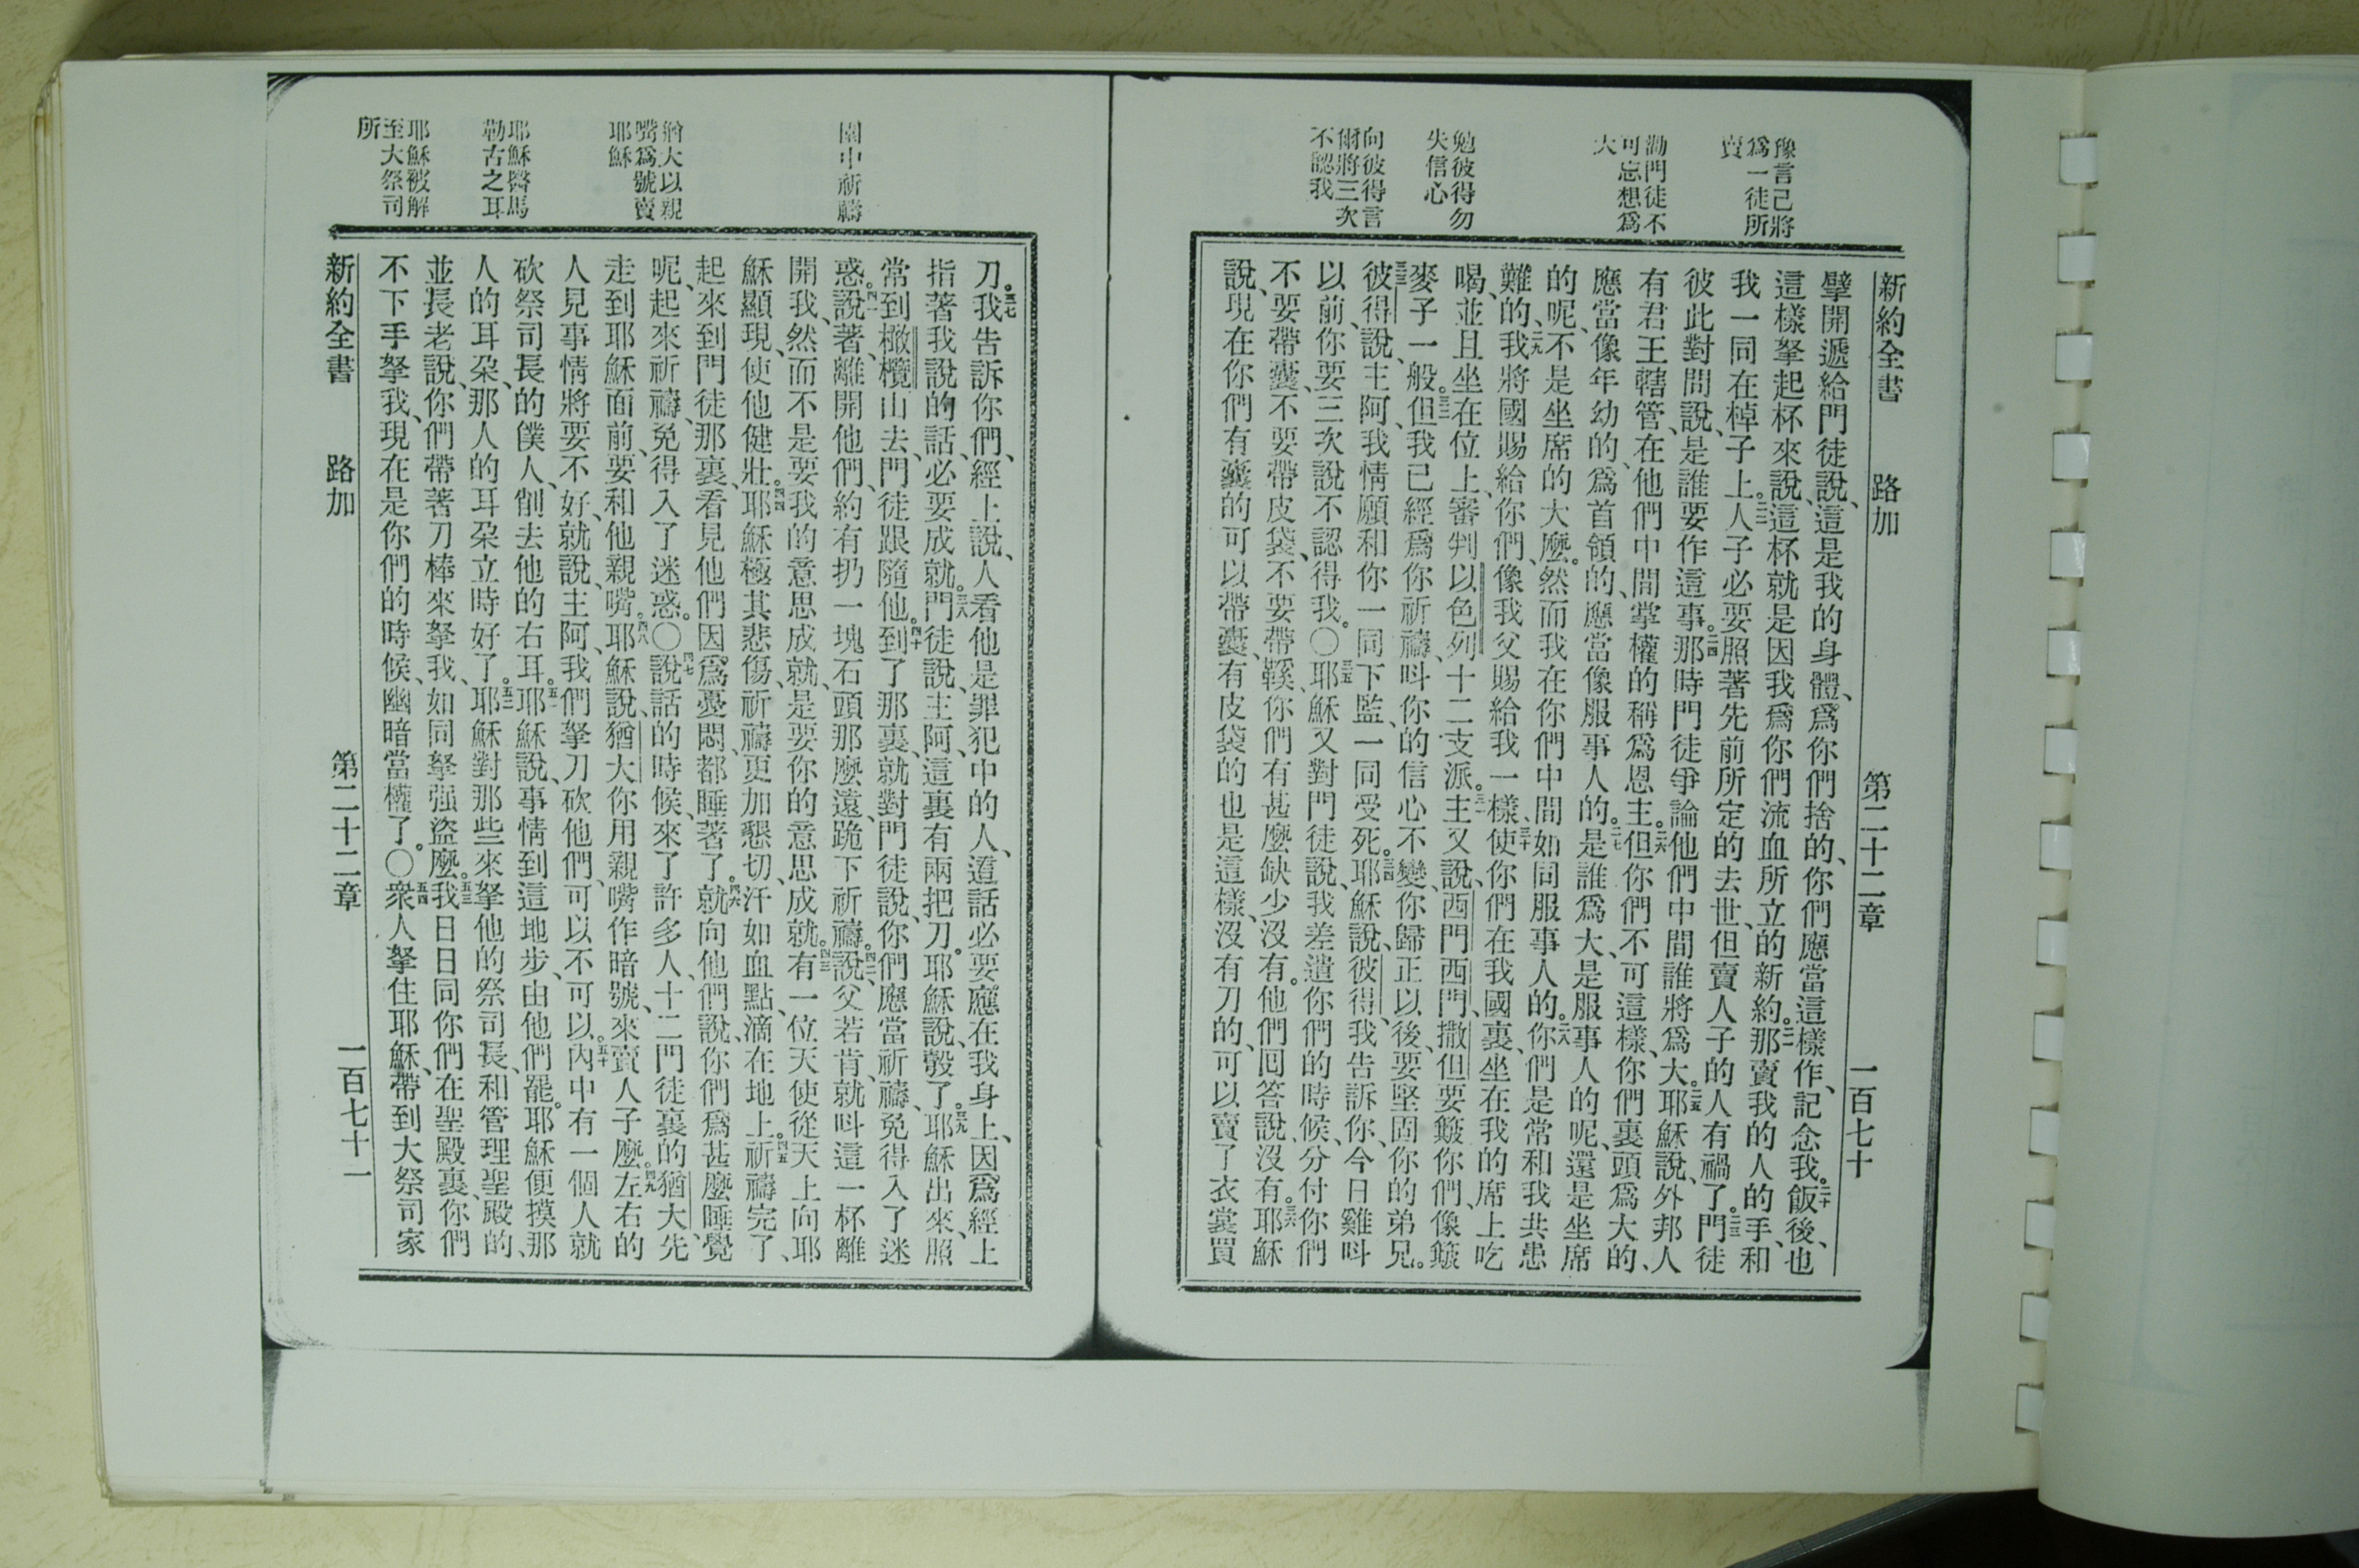 豫言己將
爲一徒所
賣
勸門徒不
可忘想爲
大
勉彼得勿
失信心
向彼得言
爾將三次
不認我
新約全書 路加 第二十二章 一百七十
擘開遞給門徒說、這是我的身體、爲你們捨的、你們應當這樣作、記念我。二十飯後、也
這樣拏起杯來說、這杯就是因我爲你們流血所立的新約。二一那賣我的人的手、和
我一同在棹子上。二二人子必要照著先前所定的去世、但賣人子的人有禍了。二三門徒
彼此對問說、是誰要作這事。二四那時門徒爭論他們中間誰將爲大。二五耶穌說、外邦人
有君王轄管、在他們中間掌權的稱爲恩主。二六但你們不可這樣、你們裏頭爲大的、
應當像年幼的、爲首領的、應當像服事人的。二七是誰爲大、是服事人的呢、還是坐席
的呢、不是坐席的大麼。然而我在你們中間如同服事人的。二八你們是常和我共患
難的、二九我將國賜給你們、像我父賜給我一樣、三十使你們在我國裏、坐在我的席上吃
喝、並且坐在位上、審判以色列十二支派。三一主又說、西門西門、撒但要簸你們、像簸
麥子一般。三二但我已經爲你祈禱、呌你的信心不變、你歸正以後、要堅固你的弟兄。
三三彼得說、主阿、我情願和你一同下監、一同受死。三四耶穌說、彼得、我告訴你、今日雞呌
以前、你要三次說不認得我。〇三五耶穌又對門徒說、我差遣你們的時候、分付你們
不要帶囊、不要帶皮袋、不要帶鞵、你們有甚麼缺少沒有。他們囘答說、沒有。三六耶穌
說、現在你們有囊的可以帶囊、有皮袋的也是這樣、沒有刀的、可以賣了衣裳買
園中祈禱
猶大以親
嘴爲號賣
耶穌
耶穌醫馬
勒古之耳
耶穌被解
至大祭司
所
刀。三七我告訴你們、經上說、人看他是罪犯中的人、這話必要應在我身上、因爲經上
指著我說的話、必要成就。三八門徒說、主阿、這裏有兩把刀。耶穌說、彀了。三九耶穌出來、照
常到橄欖山去、門徒跟隨他。四十到了那裏、就對門徒說、你們應當祈禱、免得入了迷
惑。四一說著、離開他們、約有扔一塊石頭那麼遠、跪下祈禱。四二說父若肯、就呌這一杯離
開我、然而不是要我的意思成就、是要你的意思成就。四三有一位天使從天上向耶
穌顯現、使他健壯。四四耶穌極其悲傷、祈禱更加懇切、汗如血點、滴在地上。四五祈禱完了、
起來到門徒那裏、看見他們因爲憂悶、都睡著了。四六就向他們說、你們爲甚麼睡覺
呢、起來祈禱、免得入了迷惑。〇四七說話的時候、來了許多人、十二門徒裏的猶大、先
走到耶穌面前、要和他親嘴。四八耶穌說、猶大你用親嘴作暗號、來賣人子麼。四九左右的
人見事情將要不好、就說、主阿、我們拏刀砍他們、可以不可以。五十內中有一個人就
砍祭司長的僕人、削去他的右耳。五一耶穌說、事情到這地步、由他們罷。耶穌便摸那
人的耳朶、那人的耳朶立時好了。五二耶穌對那些來拏他的祭司長、和管理聖殿的、
並長老說、你們帶著刀棒來拏我、如同拏强盜麼。五三我日日同你們在聖殿裏、你們
不下手拏我、現在是你們的時候、幽暗當權了。〇五四衆人拏住耶穌、帶到大祭司家
新約全書 路加 第二十二章 一百七十一